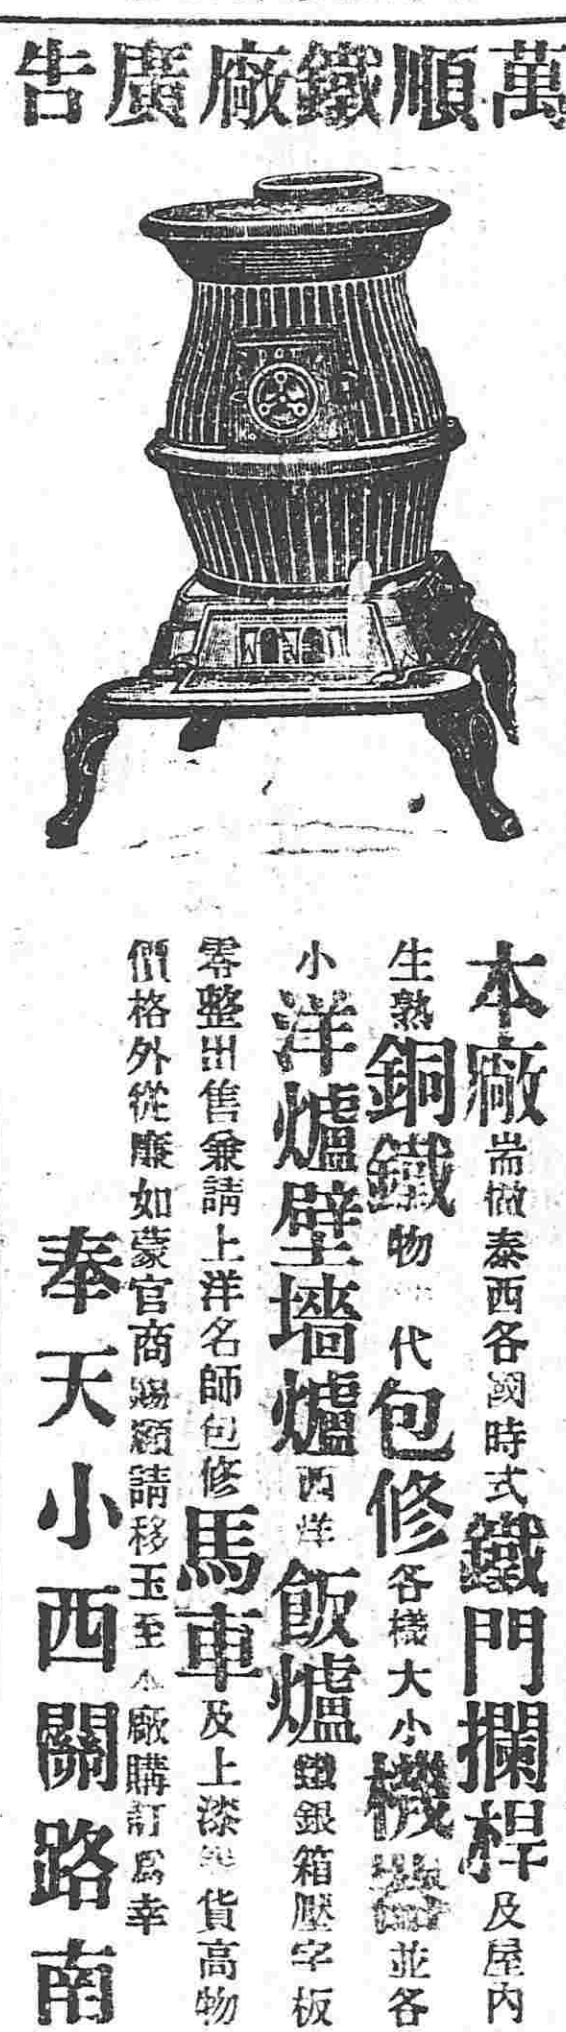 萬順鐵廠廣告
本廠耑做泰西各國時式鐵門攔桿及屋內
生熟銅鐵物代包修各樣大小機器並各
小洋爐壁墻爐西洋飯爐鐵銀箱壓字板
零整出售兼請上洋名師包修馬車及上漆貨高物
價格外從廉如蒙官商賜顧請移玉至小廠購訂爲幸
奉天小西關路南